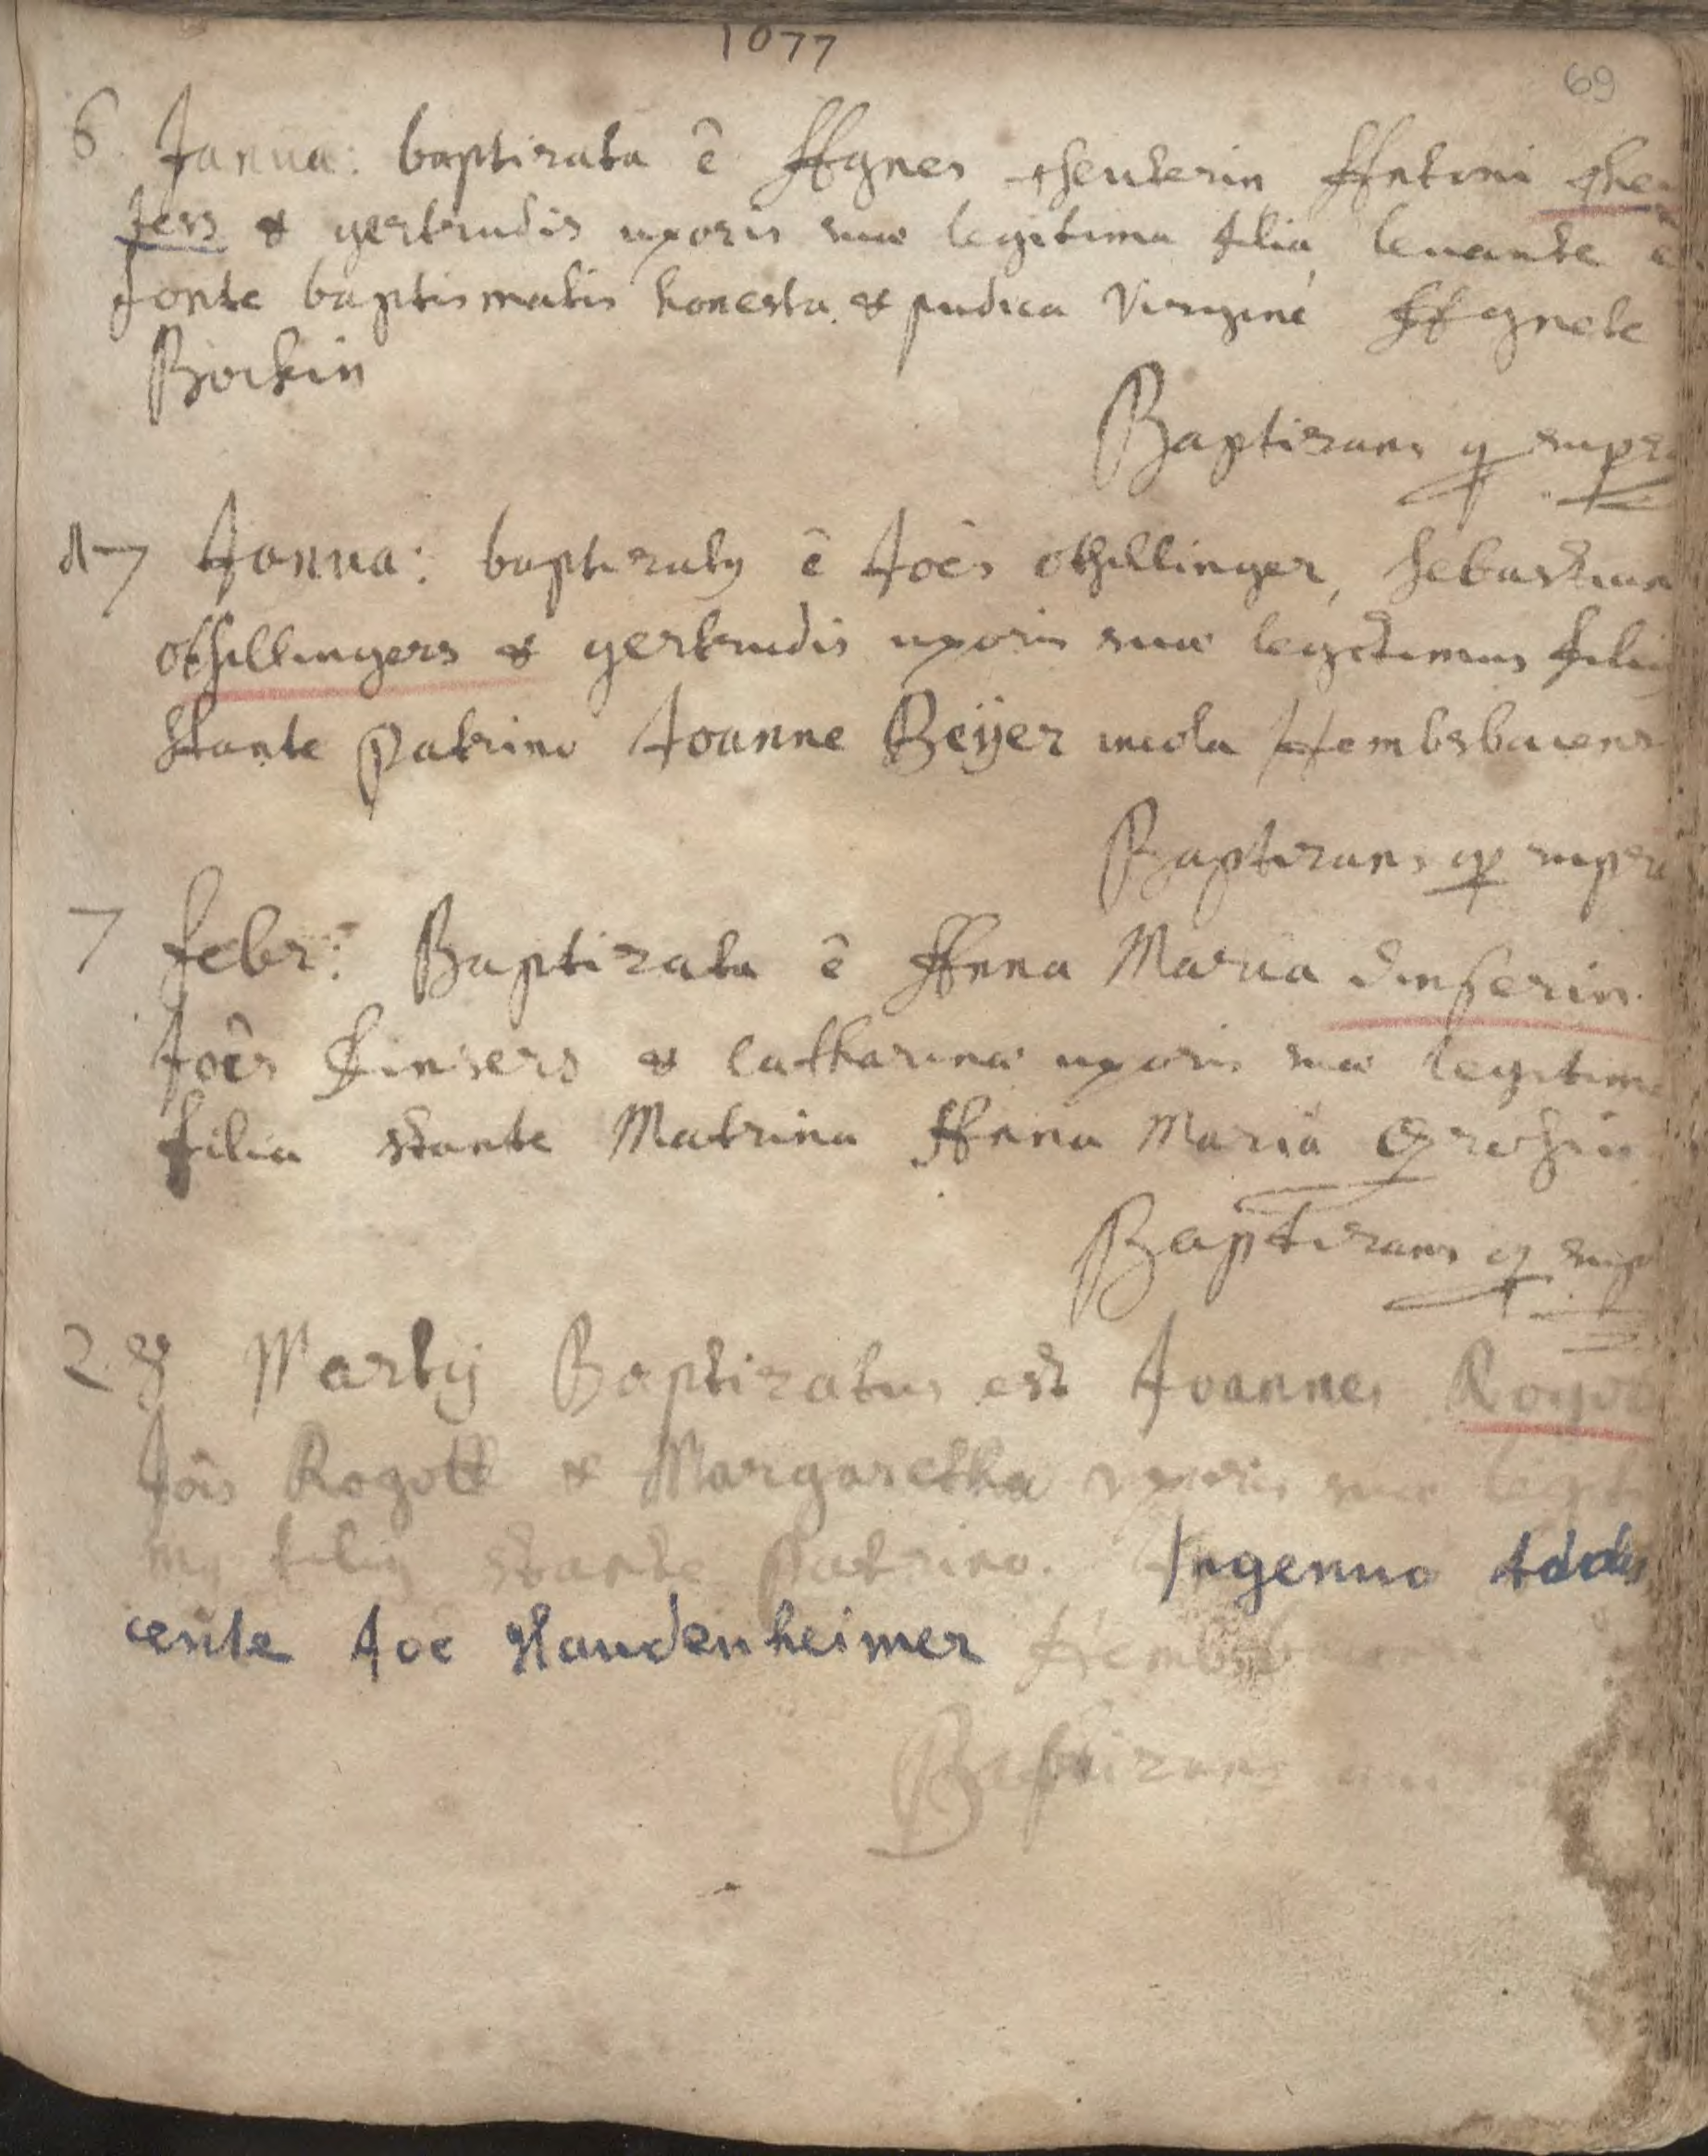 1677
69
6 Janua: baptizata ê Agnes Theuterin Antoni Theu
ters & gertrudis uxoris suæ legitima filia, levante e
fonte baptismatis honesta & pudica Virgine Agnete
Bockin
Baptizans q supra
17 Janua: baptizatq ê Joês Othillinger, Sebastian
Othillingers & gertrudis uxoris suæ legitimus filiq
stante Patrino Joanne Beÿer incola Hembsbacens
Baptizans q supra
7 Febr: Baptizata ê Anna Maria dinserin
Joês Dinsers & Catharinæ uxoris suæ legitima
filia stante Matrina Anna Maria Grosin
Baptizans q sup
28 Martij Baptizatus est Joannes Rogot
Jôis Rogott & Margaretha uxoris suæ legiti
mq filiq stante Patrino. Ingenuo Adoles
cente Joe Haudenheimer Hembsbacensi
Baptizans